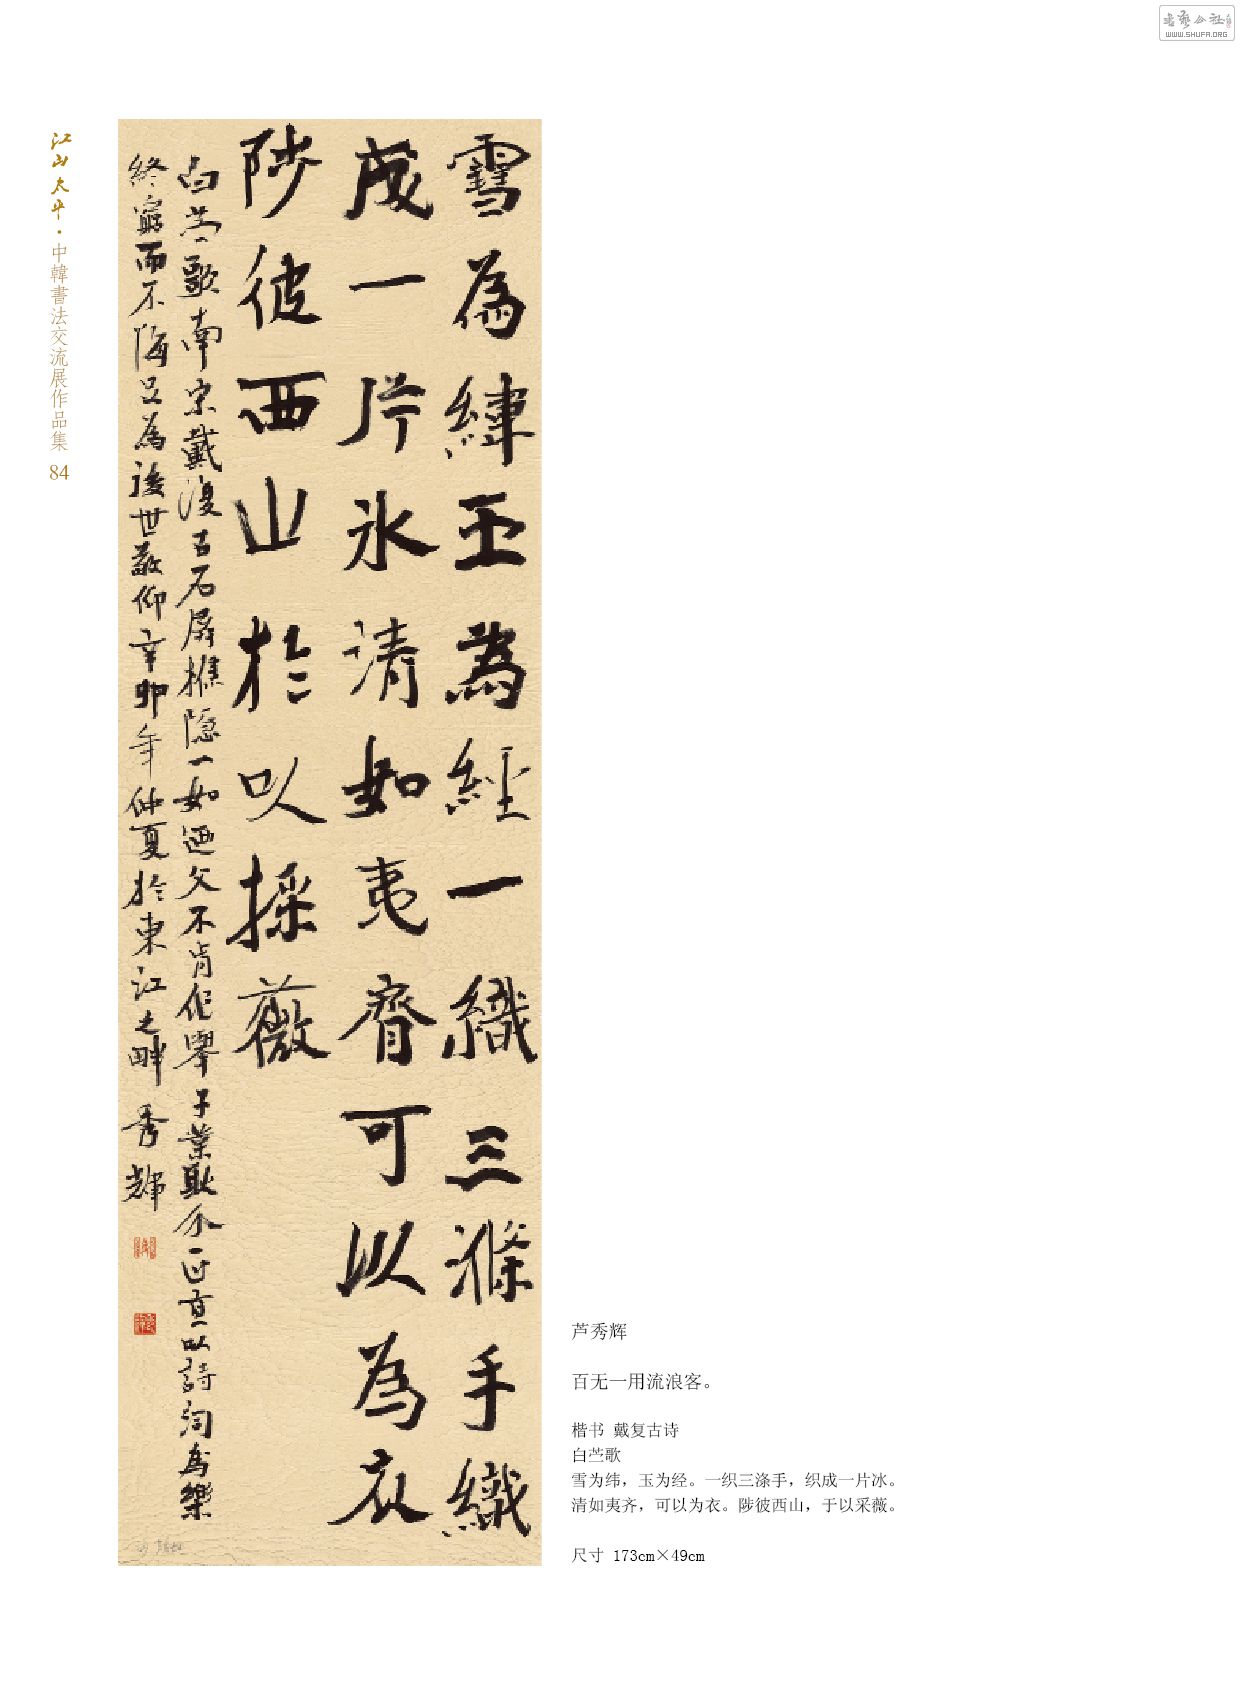 書藝公社
WWW.SHUFA.ORG
江山太平·中韓書法交流展作品集 84
雪為緯玉為經一織三滌手織
成一片氷清如夷齊可以為衣
陟彼西山於以採薇
白苎歌南宋戴復古石屏樵隱一如迺父不肯作舉子業耿介正直以詩詞為樂
終窮而不悔足為後世敬仰辛卯年仲夏於東江之畔 秀輝
芦秀辉
百无一用流浪客。
楷书 戴复古诗
白苎歌
雪为纬，玉为经。一织三涤手，织成一片冰。
清如夷齐，可以为衣。陟彼西山，于以采薇。
尺寸 173cm×49cm